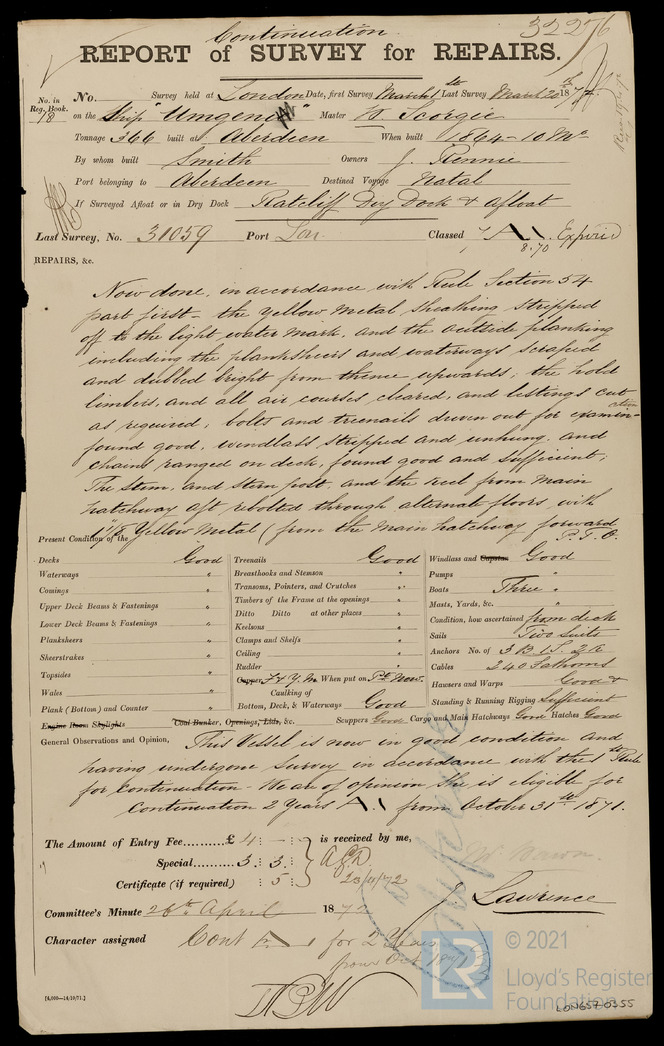 Continuation
32256
REPORT of SURVEY for REPAIRS.
No. in Reg. Book. 78
No. Survey held at London Date, first Survey March 1st Last Survey March 20th 1872
on the Ship "Umgeni" Master W. Scorgie
Tonnage 366 built at Aberdeen When built 1864 - 10 Mo
By whom built Smith Owners J. Rennie
Port belonging to Aberdeen Destined Voyage Natal
If Surveyed Afloat or in Dry Dock Ratcliff Dry Dock & afloat
Last Survey, No. 31059 Port Lon Classed 7 A1. Expired
8.70
REPAIRS, &c.
Now done, in accordance with Rule Section 54
part first - the Yellow Metal Sheathing stripped
off to the light water mark, and the outside planking
including the planksheers and waterways scraped
and dubbed bright from thence upwards; the hold
limbers, and all air courses cleared, and listings cut
as required, bolts and treenails driven out for examination
found good, windlass stripped and unhung, and
chains ranged on deck, found good and sufficient;
The stem, and stern post, and the keel from main
hatchway aft rebolted through alternate floors with
1 1/8 Yellow Metal (from the main hatchway forward
P.T.O.
Present Condition of the
Decks Good
Waterways "
Comings "
Upper Deck Beams & Fastenings "
Lower Deck Beams & Fastenings "
Planksheers "
Sheerstrakes "
Topsides "
Wales "
Plank (Bottom) and Counter "
Engine Room Skylights
Treenails Good
Breasthooks and Stemson "
Transoms, Pointers, and Crutches "
Timbers of the Frame at the openings "
Ditto Ditto at other places "
Keelsons "
Clamps and Shelfs "
Ceiling "
Rudder "
Copper F & Y.M. When put on Pt New.
Caulking of
Bottom, Deck, & Waterways Good
Coal Bunker, Openings, Lids, &c.
Windlass and Capstan Good
Pumps "
Boats Three "
Masts, Yards, &c. "
Condition, how ascertained from deck
Sails Two Suits
Anchors No. of 3 B. 1 S. 2 K
Cables 240 Fathoms
Hawsers and Warps Good &
Standing & Running Rigging Sufficient
Scuppers Good Cargo and Main Hatchways Good Hatches Good
General Observations and Opinion, This Vessel is now in good condition and
having undergone Survey in accordance with the 1st Rule
for Continuation. We are of opinion she is eligible for
Continuation 2 Years A.1 from October 31st 1871.
The Amount of Entry Fee £ 4 : - : is received by me,
Special 3 : 3 :
Certificate (if required) : 5 :
23/4/72
J. Lawrence
Committee's Minute 26th April 1872
Character assigned Cont A 1 for 2 Years
from Oct 1871
[4,000-14/10/71.]
© 2021
LR
Lloyd's Register
Foundation
LON657-0355